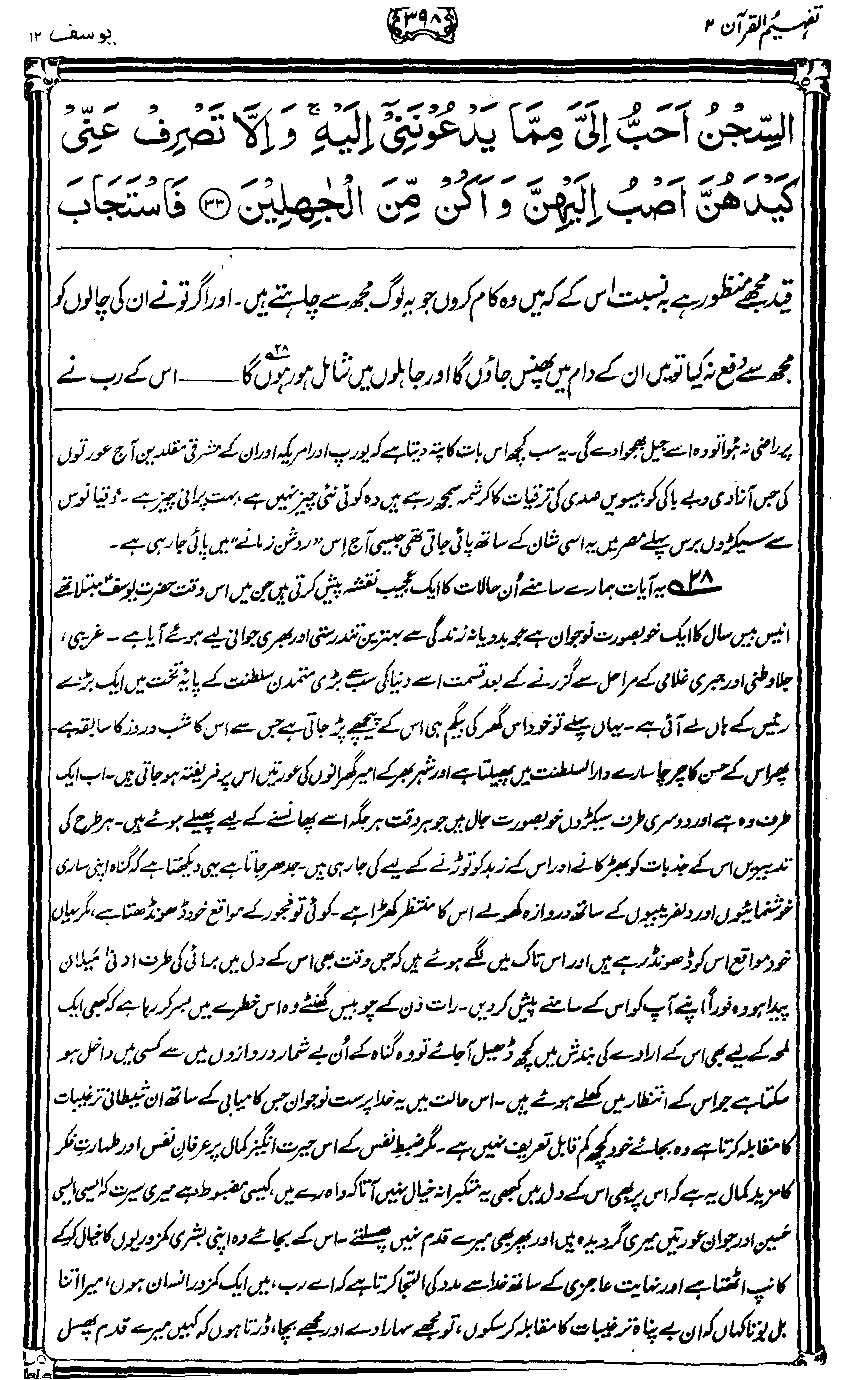 تفہیم القرآن ۲
۳۹۸
یوسف ۱۲
السِّجْنُ اَحَبُّ اِلَیَّ مِمَّا یَدْعُوْنَنِیْۤ اِلَیْهِ ۚ وَ اِلَّا تَصْرِفْ عَنِّیْ
كَیْدَهُنَّ اَصْبُ اِلَیْهِنَّ وَ اَكُنْ مِّنَ الْجٰهِلِیْنَ ﴿۳۳﴾ فَاسْتَجَابَ
قید مجھے منظور ہے بہ نسبت اس کے کہ میں وہ کام کروں جو یہ لوگ مجھ سے چاہتے ہیں۔ اور اگر تو نے ان کی چالوں کو
مجھ سے دفع نہ کیا تو میں ان کے دام میں پھنس جاؤں گا اور جاہلوں میں شامل ہو رہوں گا ۲۸ ــــــ اس کے رب نے
پر راضی نہ ہوا تو وہ اسے جیل بھجوا دے گی۔ یہ سب کچھ اس بات کا پتہ دیتا ہے کہ یورپ اور امریکہ اور ان کے مشرقی مقلدین آج عورتوں
کی جس آزادی و بے باکی کو بیسویں صدی کی ترقیات کا کرشمہ سمجھ رہے ہیں وہ کوئی نئی چیز نہیں ہے، بہت پرانی چیز ہے۔ دقیانوس
سے سیکڑوں برس پہلے مصر میں یہ اسی شان کے ساتھ پائی جاتی تھی جیسی آج اِس ”روشن زمانے“ میں پائی جا رہی ہے۔
۲۸؎ یہ آیات ہمارے سامنے اُن حالات کا ایک عجیب نقشہ پیش کرتی ہیں جن میں اس وقت حضرت یوسفؑ مبتلا تھے
انیس بیس سال کا ایک خوبصورت نوجوان ہے جو بدویانہ زندگی سے بہترین تندرستی اور بھری جوانی لیے ہوئے آیا ہے۔ غریبی،
جلاوطنی اور جبری غلامی کے مراحل سے گزرنے کے بعد قسمت اسے دنیا کی سب سے بڑی متمدن سلطنت کے پایۂ تخت میں ایک بڑے
رئیس کے ہاں لے آئی ہے۔ یہاں پہلے تو خود اس گھر کی بیگم ہی اس کے پیچھے پڑ جاتی ہے جس سے اس کا شب و روز کا سابقہ ہے۔
پھر اس کے حسن کا چرچا سارے دارالسلطنت میں پھیلتا ہے اور شہر بھر کے امیر گھرانوں کی عورتیں اس پر فریفتہ ہو جاتی ہیں۔ اب ایک
طرف وہ ہے اور دوسری طرف سیکڑوں خوبصورت جال ہیں جو ہر وقت ہر جگہ اسے پھانسنے کے لیے پھیلے ہوئے ہیں۔ ہر طرح کی
تدبیریں اس کے جذبات کو بھڑکانے اور اس کے زہد کو توڑنے کے لیے کی جا رہی ہیں۔ جدھر جاتا ہے یہی دیکھتا ہے کہ گناہ اپنی ساری
خوشنمائیوں اور دلفریبیوں کے ساتھ دروازہ کھولے اس کا منتظر کھڑا ہے۔ کوئی تو فجور کے مواقع خود ڈھونڈھتا ہے، مگر یہاں
خود مواقع اس کو ڈھونڈ رہے ہیں اور اس تاک میں لگے ہوئے ہیں کہ جس وقت بھی اس کے دل میں برائی کی طرف ادنیٰ میلان
پیدا ہو وہ فوراً اپنے آپ کو اس کے سامنے پیش کر دیں۔ رات دن کے چوبیس گھنٹے وہ اس خطرے میں بسر کر رہا ہے کہ کبھی ایک
لمحہ کے لیے بھی اس کے ارادے کی بندش میں کچھ ڈھیل آ جائے تو وہ گناہ کے اُن بے شمار دروازوں میں سے کسی میں داخل ہو
سکتا ہے جو اس کے انتظار میں کھلے ہوئے ہیں۔ اس حالت میں یہ خدا پرست نوجوان جس کامیابی کے ساتھ ان شیطانی ترغیبات
کا مقابلہ کرتا ہے وہ بجائے خود کچھ کم قابل تعریف نہیں ہے۔ مگر ضبطِ نفس کے اس حیرت انگیز کمال پر عرفانِ نفس اور طہارتِ فکر
کا مزید کمال یہ ہے کہ اس پر بھی اس کے دل میں کبھی یہ متکبرانہ خیال نہیں آتا کہ واہ رے میں، کیسی مضبوط ہے میری سیرت کہ ایسی ایسی
حسین اور جوان عورتیں میری گرویدہ ہیں اور پھر بھی میرے قدم نہیں پھسلتے۔ اس کے بجائے وہ اپنی بشری کمزوریوں کا خیال کر کے
کانپ اٹھتا ہے اور نہایت عاجزی کے ساتھ خدا سے مدد کی التجا کرتا ہے کہ اے رب، میں ایک کمزور انسان ہوں، میرا اتنا
بل بوتا کہاں کہ ان بے پناہ ترغیبات کا مقابلہ کر سکوں، تو مجھے سہارا دے اور مجھے بچا، ڈرتا ہوں کہ کہیں میرے قدم پھسل